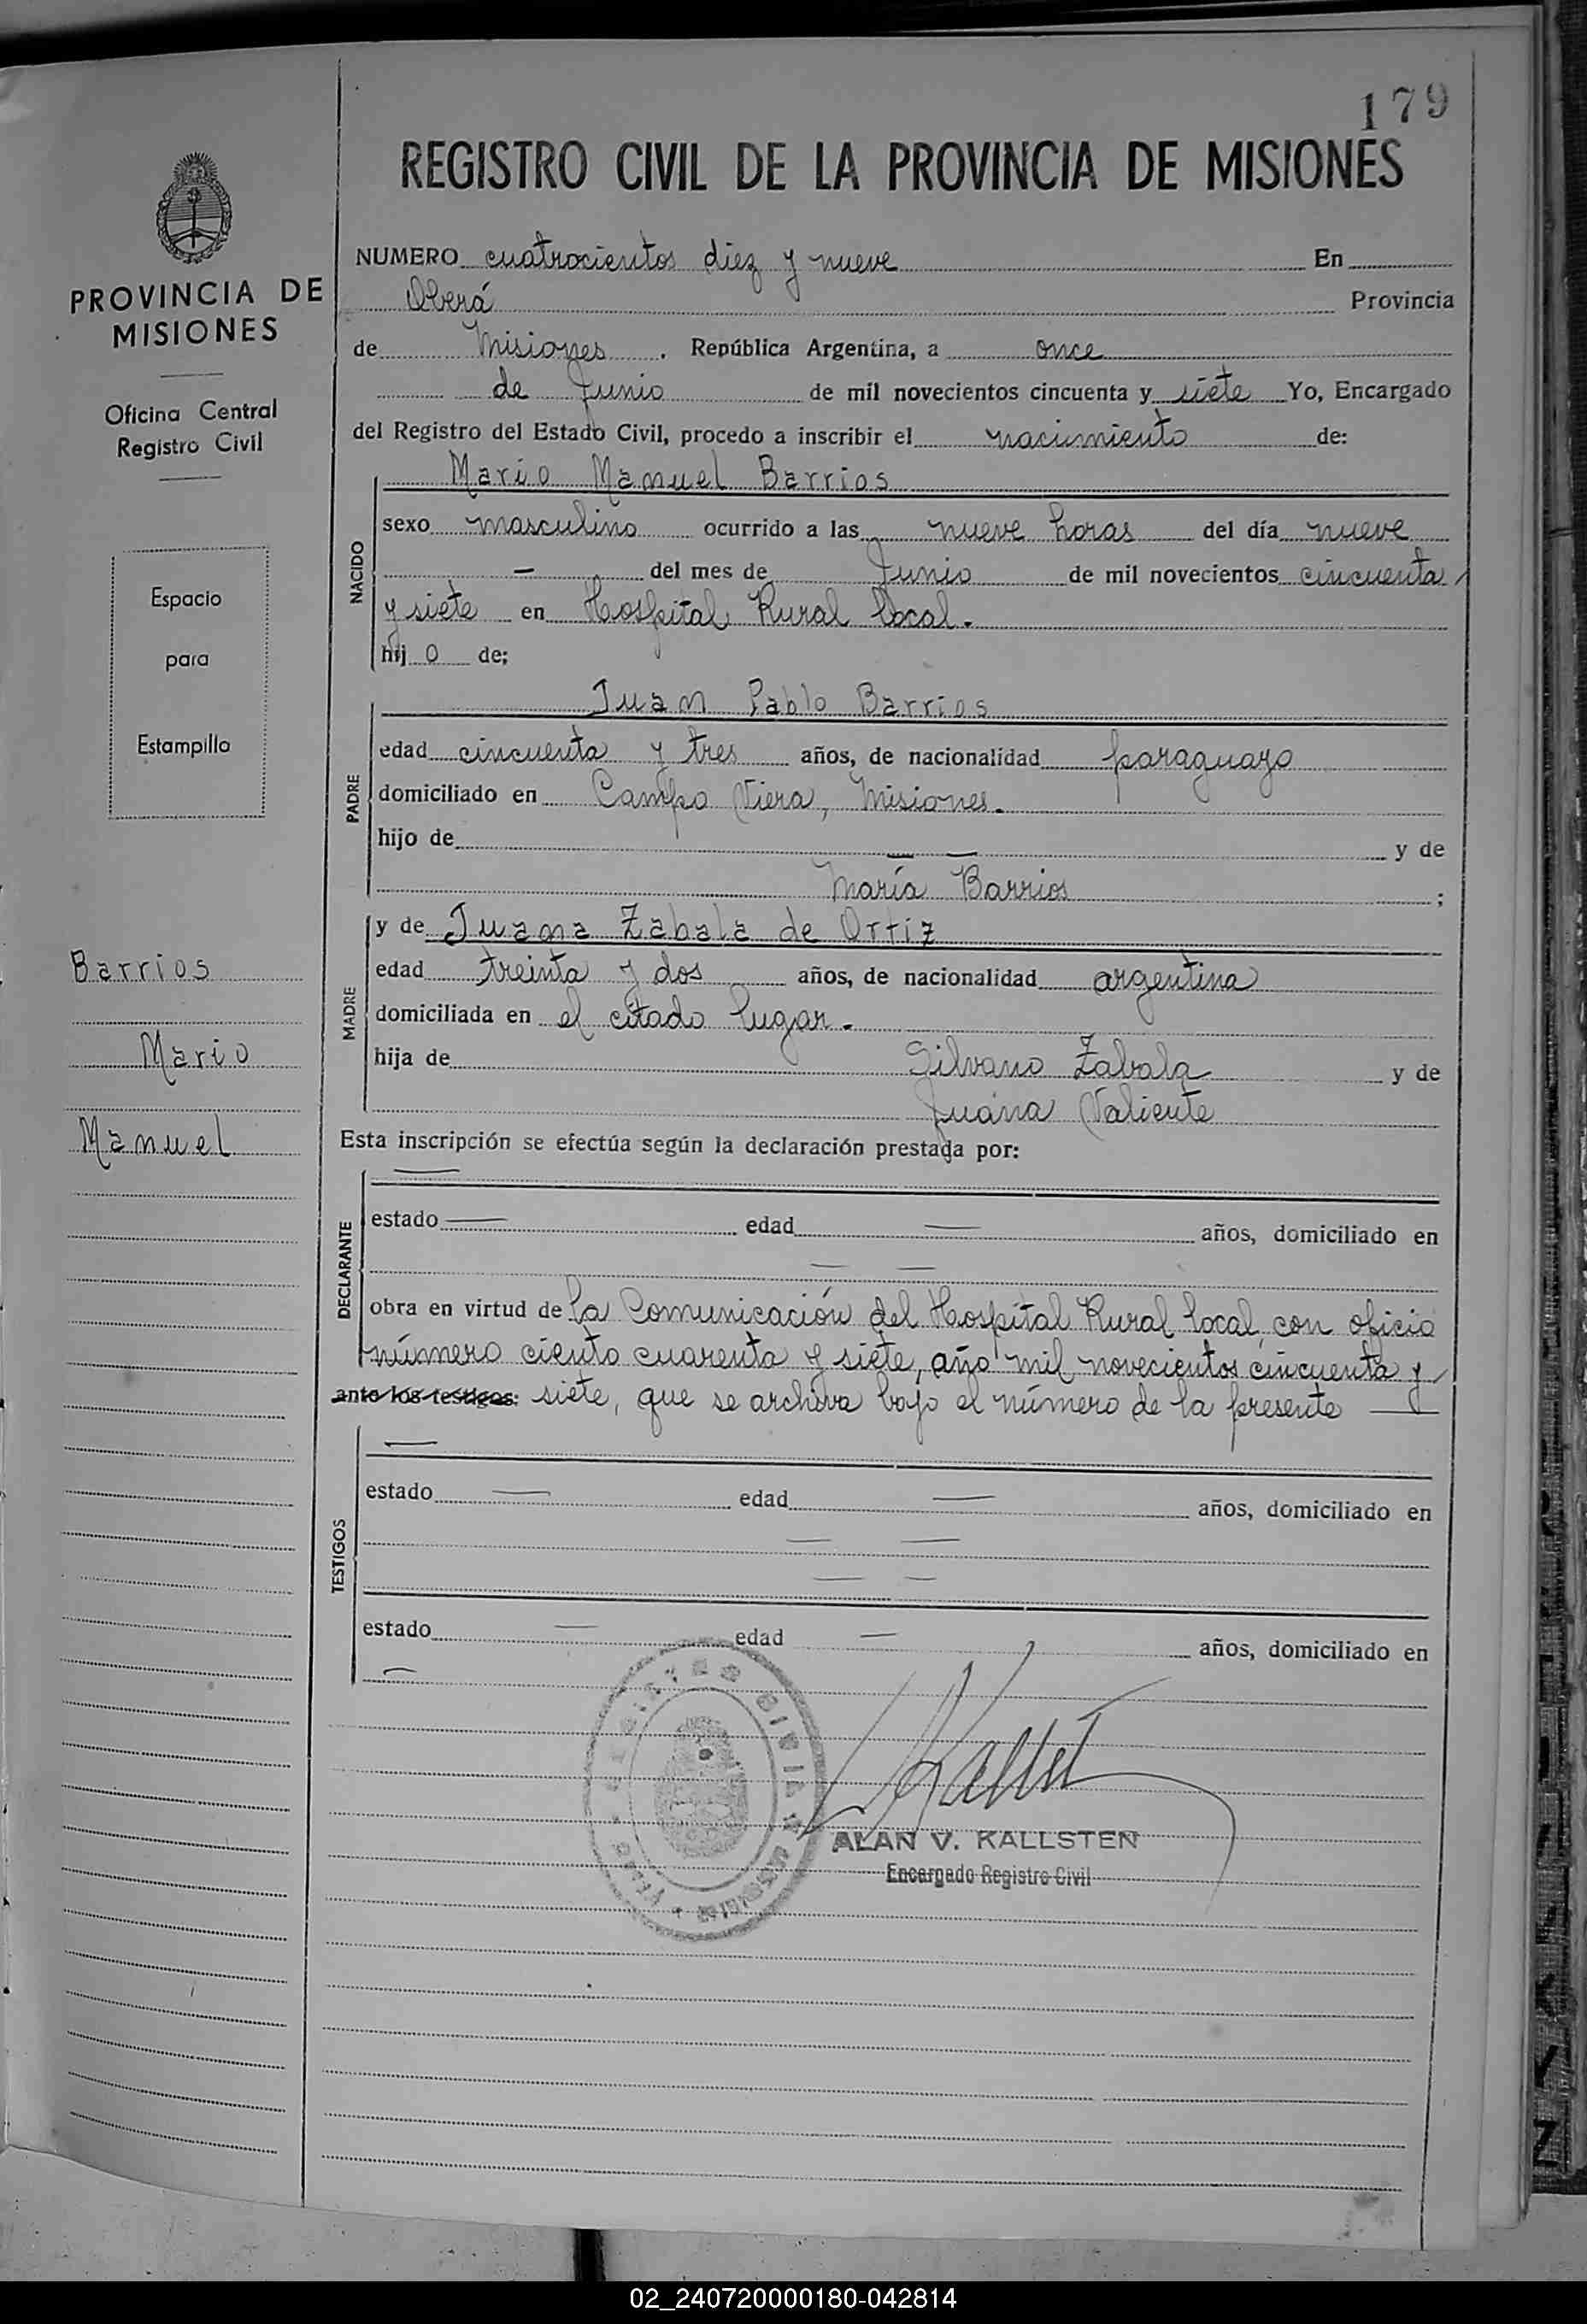 179
REGISTRO CIVIL DE LA PROVINCIA DE MISIONES
PROVINCIA DE
MISIONES
Oficina Central
Registro Civil
Espacio
para
Estampilla
Barrios
Mario
Manuel
NUMERO cuatrocientos diez y nueve En
Oberá Provincia
de Misiones. República Argentina, a once
de Junio de mil novecientos cincuenta y siete Yo, Encargado
del Registro del Estado Civil, procedo a inscribir el nacimiento de:
NACIDO
Mario Manuel Barrios
sexo masculino ocurrido a las nueve horas del día nueve
— del mes de Junio de mil novecientos cincuenta
y siete en Hospital Rural local.
hij o de;
PADRE
Juan Pablo Barrios
edad cincuenta y tres años, de nacionalidad paraguayo
domiciliado en Campo Viera, Misiones.
hijo de — — y de
María Barrios ;
MADRE
y de Juana Zabala de Ortiz
edad treinta y dos años, de nacionalidad argentina
domiciliada en el citado lugar.
hija de Silvano Zabala y de
Juana Valiente
Esta inscripción se efectúa según la declaración prestada por:
DECLARANTE
—
estado — edad — años, domiciliado en
— —
obra en virtud de la Comunicación del Hospital Rural local, con oficio
número ciento cuarenta y siete, año mil novecientos cincuenta y
ante los testigos: siete, que se archiva bajo el número de la presente —
TESTIGOS
—
estado — edad — años, domiciliado en
— —
— —
estado — edad — años, domiciliado en
—
ALAN V. KALLSTEN
Encargado Registro Civil
02_240720000180-042814